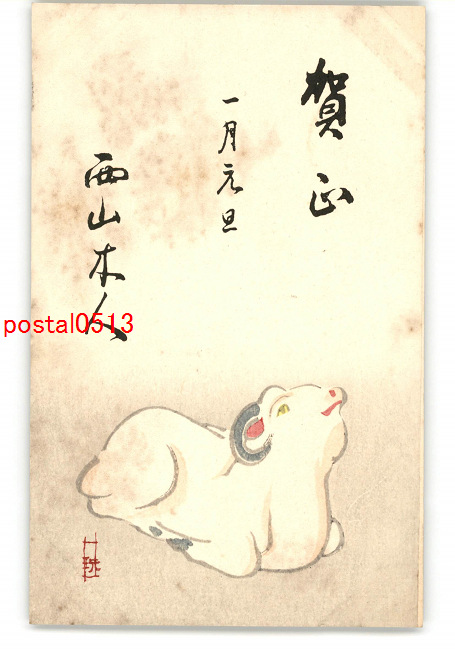 賀正
一月元旦
西山木人
postal0513